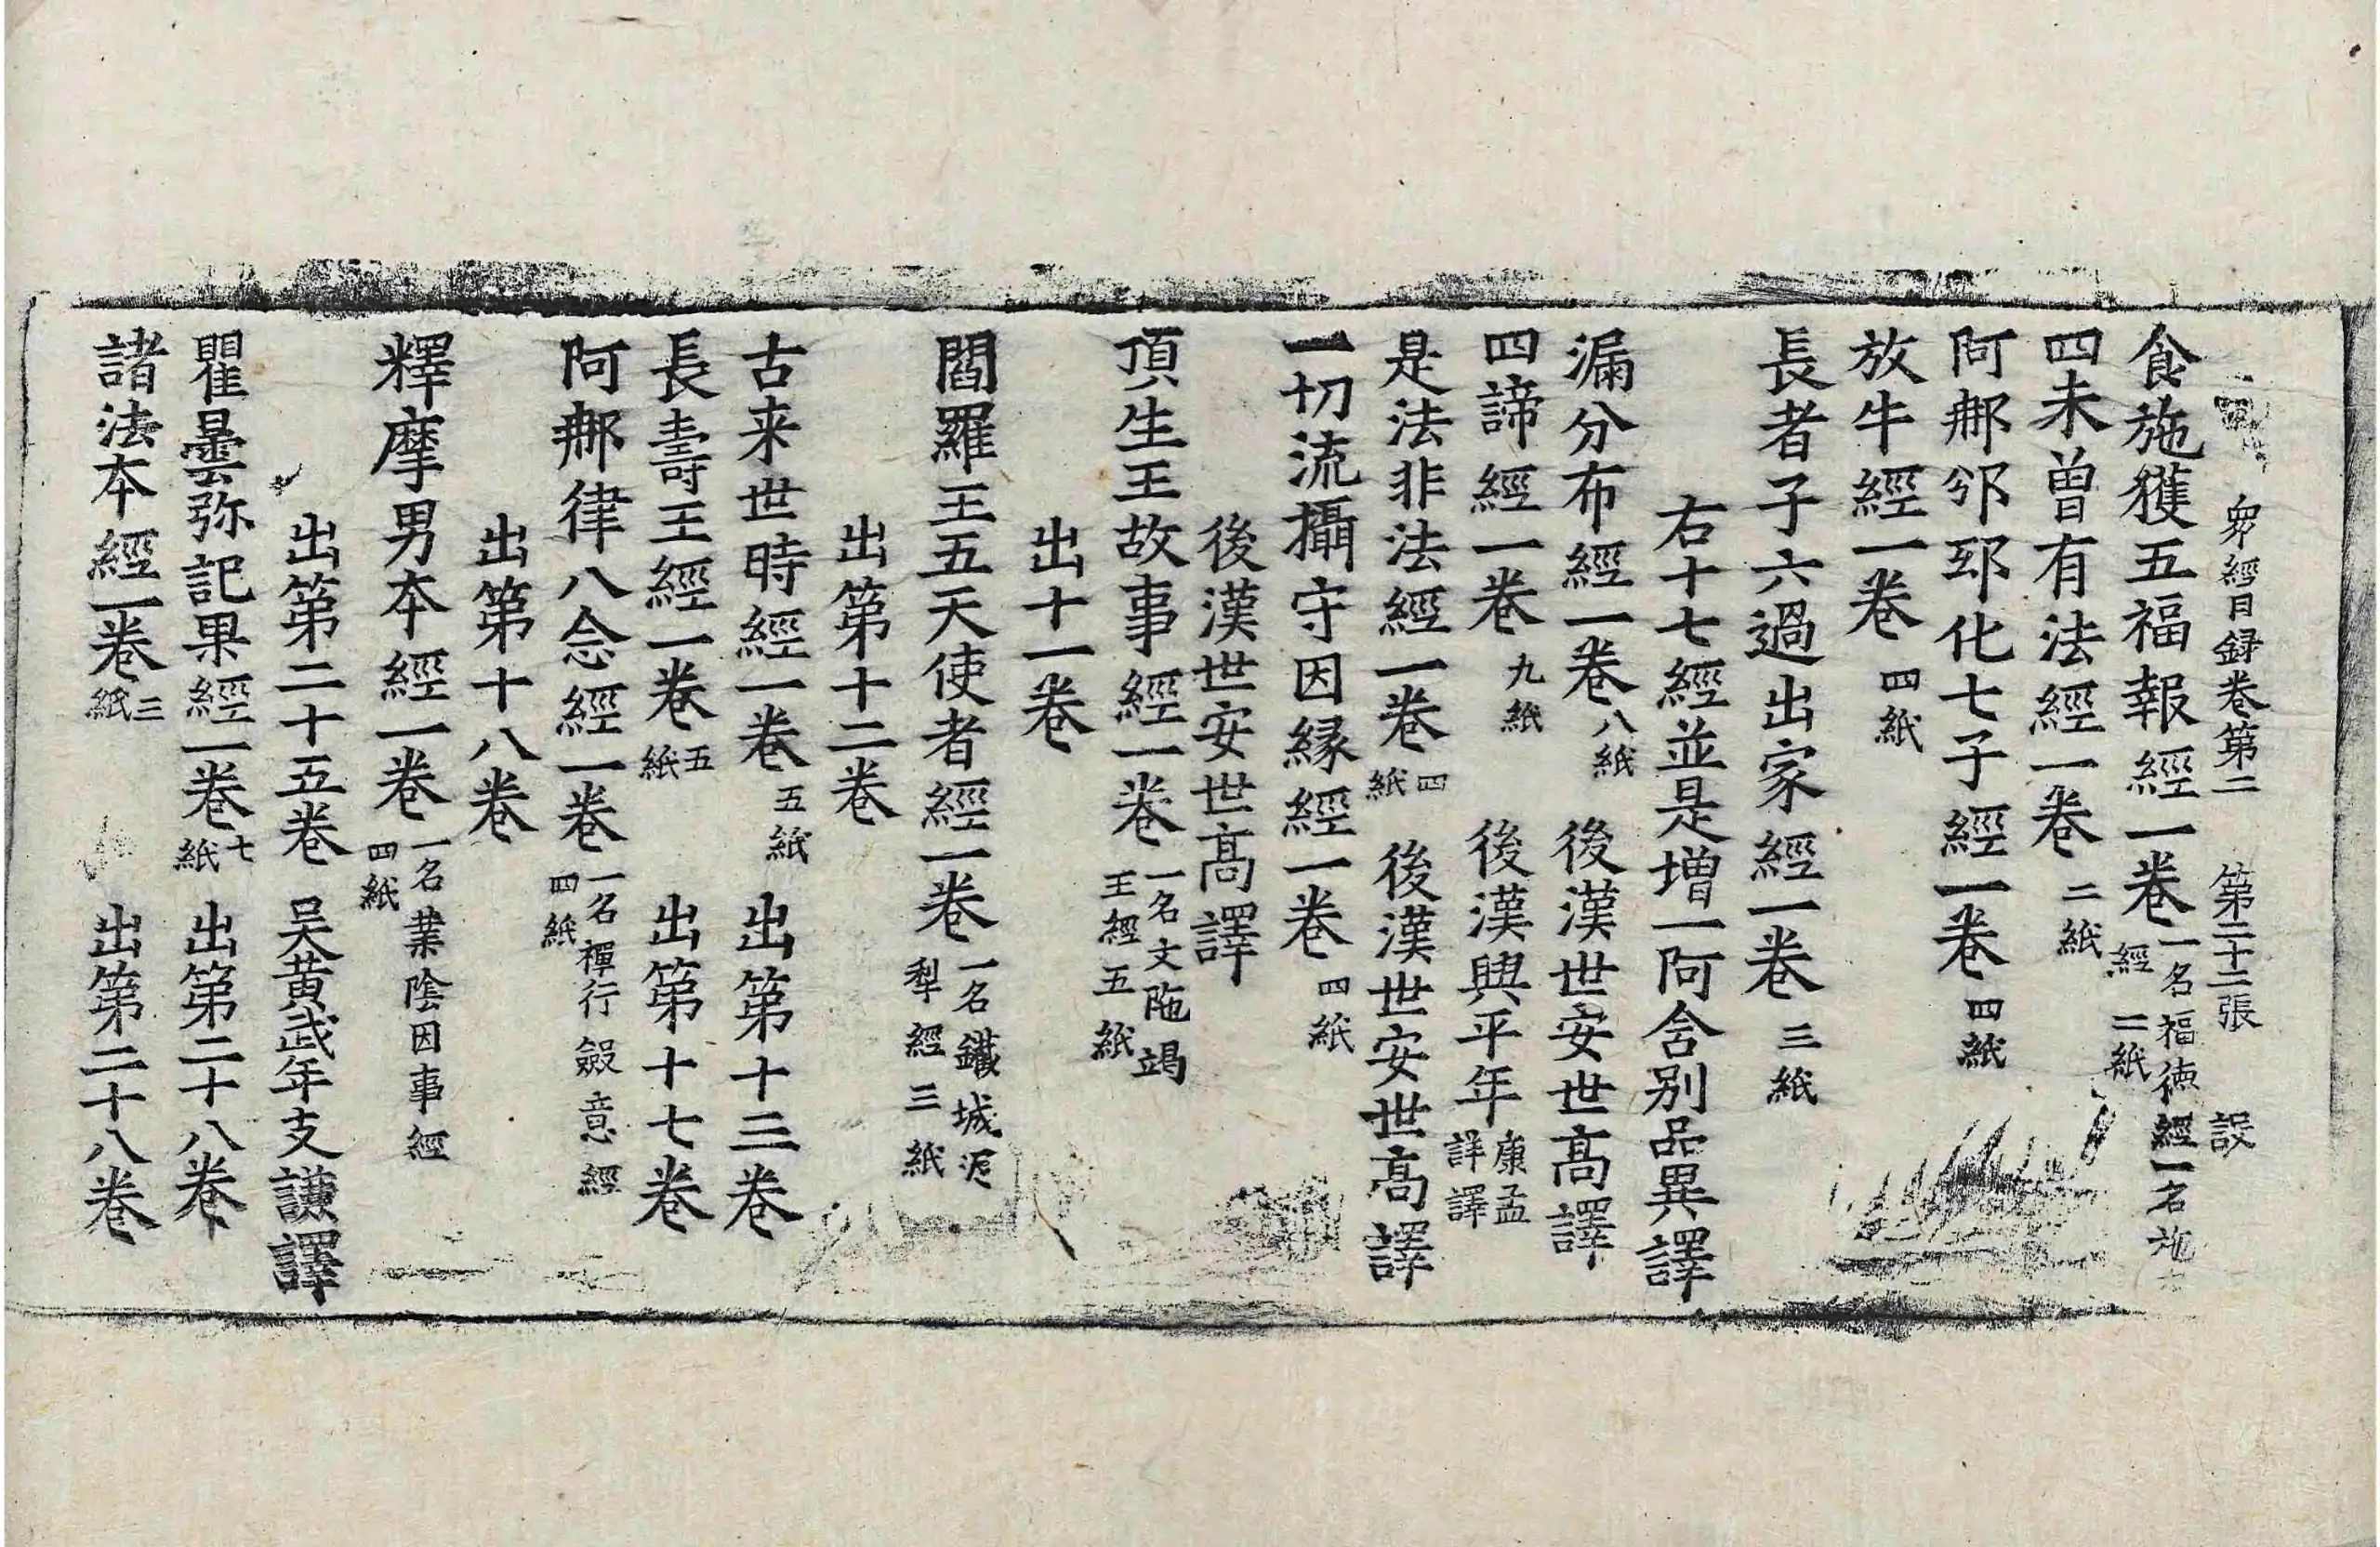 衆經目録卷第二　第二十二張　設
食施獲五福報經一卷 一名福德經一名施 經 二紙
四未曾有法經一卷 二紙
阿那邠邸化七子經一卷 四紙
放牛經一卷 四紙
長者子六過出家經一卷 三紙
右十七經並是增一阿含别品異譯
漏分布經一卷 八紙　後漢世安世高譯
四諦經一卷 九紙　後漢興平年 康孟詳譯
是法非法經一卷 四紙　後漢世安世高譯
一切流攝守因縁經一卷 四紙
後漢世安世高譯
頂生王故事經一卷 一名文陁竭王經五紙
出十一卷
閻羅王五天使者經一卷 一名鐵城泥犁經三紙
出第十二卷
古来世時經一卷 五紙　出第十三卷
長壽王經一卷 五紙　出第十七卷
阿那律八念經一卷 一名禪行斂意經四紙
出第十八卷
釋摩男本經一卷 一名業陰因事經四紙
出第二十五卷　吴黄武年支謙譯
瞿曇弥記果經一卷 七紙　出第二十八卷
諸法本經一卷 三紙　出第二十八卷